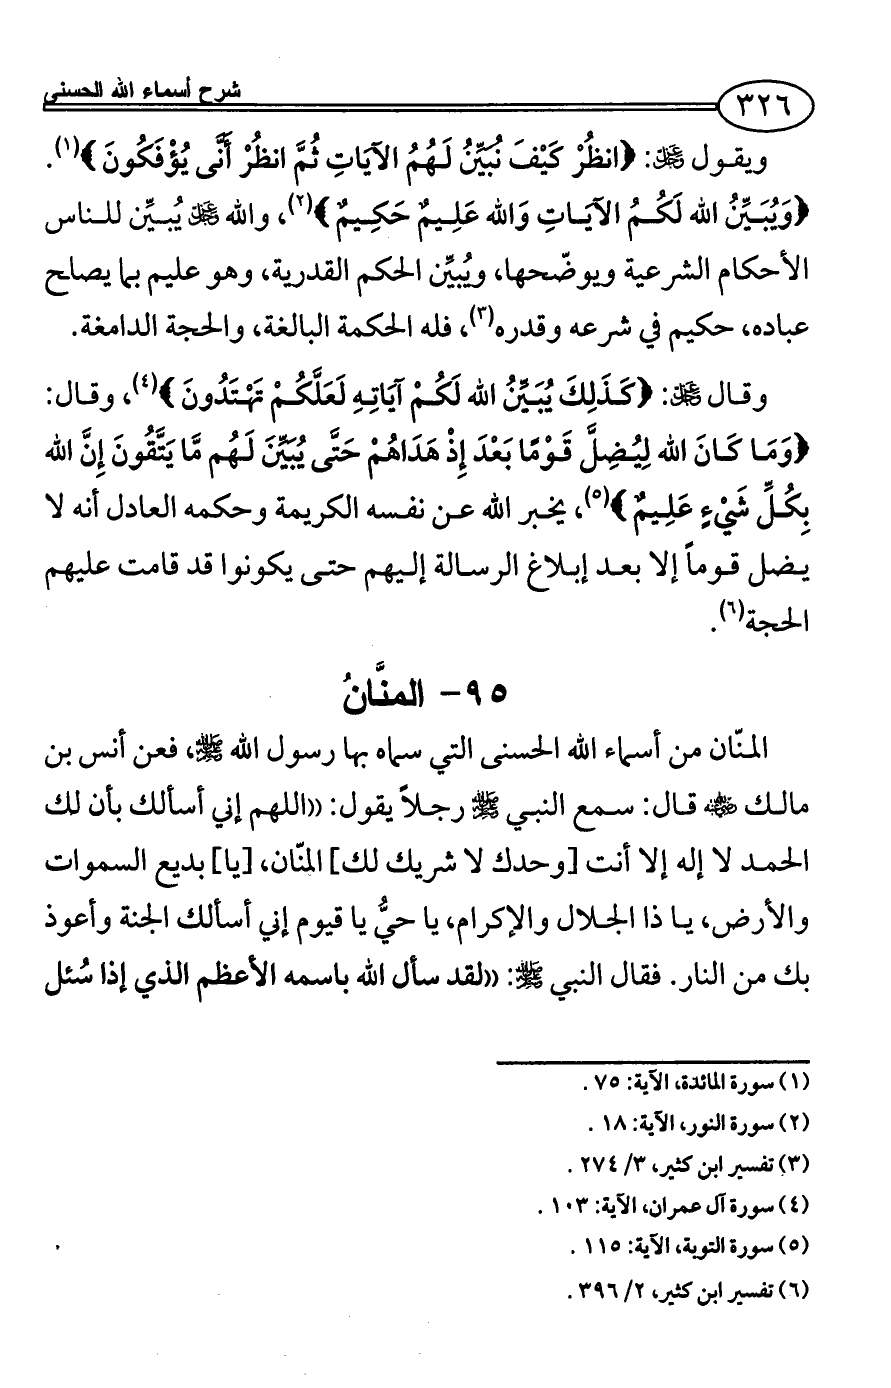 شرح أسماء الله الحسنى
٣٢٦
ويقول ﷻ: ﴿انظُرْ كَيْفَ نُبَيِّنُ لَهُمُ الآيَاتِ ثُمَّ انظُرْ أَنَّى يُؤْفَكُونَ﴾(١).
﴿وَيُبَيِّنُ الله لَكُمُ الآيَاتِ وَالله عَلِيمٌ حَكِيمٌ﴾(٢)، والله ﷻ يُبيِّن للناس
الأحكام الشرعية ويوضّحها، ويُبيِّن الحكم القدرية، وهو عليم بما يصلح
عباده، حكيم في شرعه وقدره(٣)، فله الحكمة البالغة، والحجة الدامغة.
وقال ﷻ: ﴿كَذَلِكَ يُبَيِّنُ الله لَكُمْ آيَاتِهِ لَعَلَّكُمْ تَهْتَدُونَ﴾(٤)، وقال:
﴿وَمَا كَانَ الله لِيُضِلَّ قَوْمًا بَعْدَ إِذْ هَدَاهُمْ حَتَّى يُبَيِّنَ لَهُم مَّا يَتَّقُونَ إِنَّ الله
بِكُلِّ شَيْءٍ عَلِيمٌ﴾(٥)، يخبر الله عن نفسه الكريمة وحكمه العادل أنه لا
يضل قوماً إلا بعد إبلاغ الرسالة إليهم حتى يكونوا قد قامت عليهم
الحجة(٦).
٩٥- المنَّانُ
المنّان من أسماء الله الحسنى التي سماه بها رسول الله ﷺ، فعن أنس بن
مالك ﵁ قال: سمع النبي ﷺ رجلاً يقول: ((اللهم إني أسألك بأن لك
الحمد لا إله إلا أنت [وحدك لا شريك لك] المنّان، [يا] بديع السموات
والأرض، يا ذا الجلال والإكرام، يا حيُّ يا قيوم إني أسألك الجنة وأعوذ
بك من النار. فقال النبي ﷺ: ((لقد سأل الله باسمه الأعظم الذي إذا سُئل
(١) سورة المائدة، الآية: ٧٥ .
(٢) سورة النور، الآية: ١٨ .
(٣) تفسير ابن كثير، ٣/ ٢٧٤ .
(٤) سورة آل عمران، الآية: ١٠٣ .
(٥) سورة التوبة، الآية: ١١٥ .
(٦) تفسير ابن كثير، ٢/ ٣٩٦ .